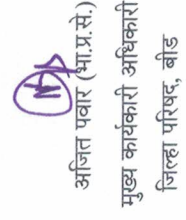 अजित पवार (भा.प्र.से.)
मुख्य कार्यकारी अधिकारी
जिल्हा परिषद, बीड